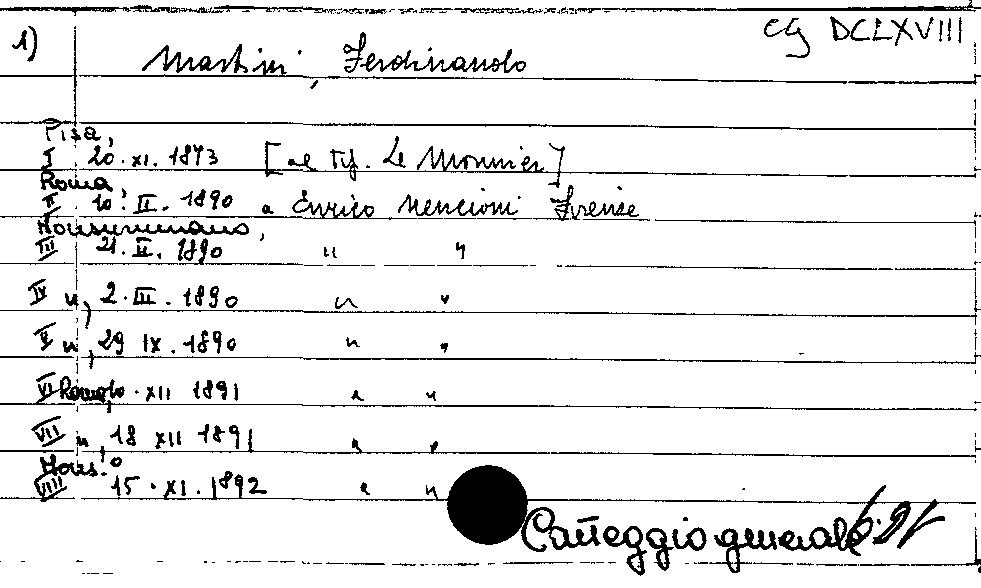 1) CG DCLXVIII
Martini, Ferdinando
Pisa,
I 20. XI. 1873 [al tip. Le Monnier]
Roma,
II 10. II. 1890 a Enrico Nencioni Firenze
Monsummano,
III 21. II. 1890 " "
IV ", 2. III. 1890 " "
V ", 29 IX. 1890 " "
VI Roma, 10. XII 1891 " "
VII ", 18 XII 1891 " "
Mons.o
VIII 15. XI. 1892 " "
Carteggio generale